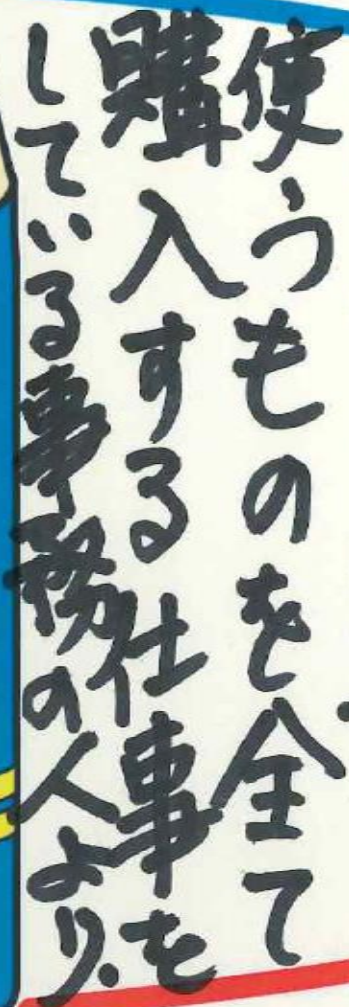 使うものを全て
購入する仕事を
している事務の人より.